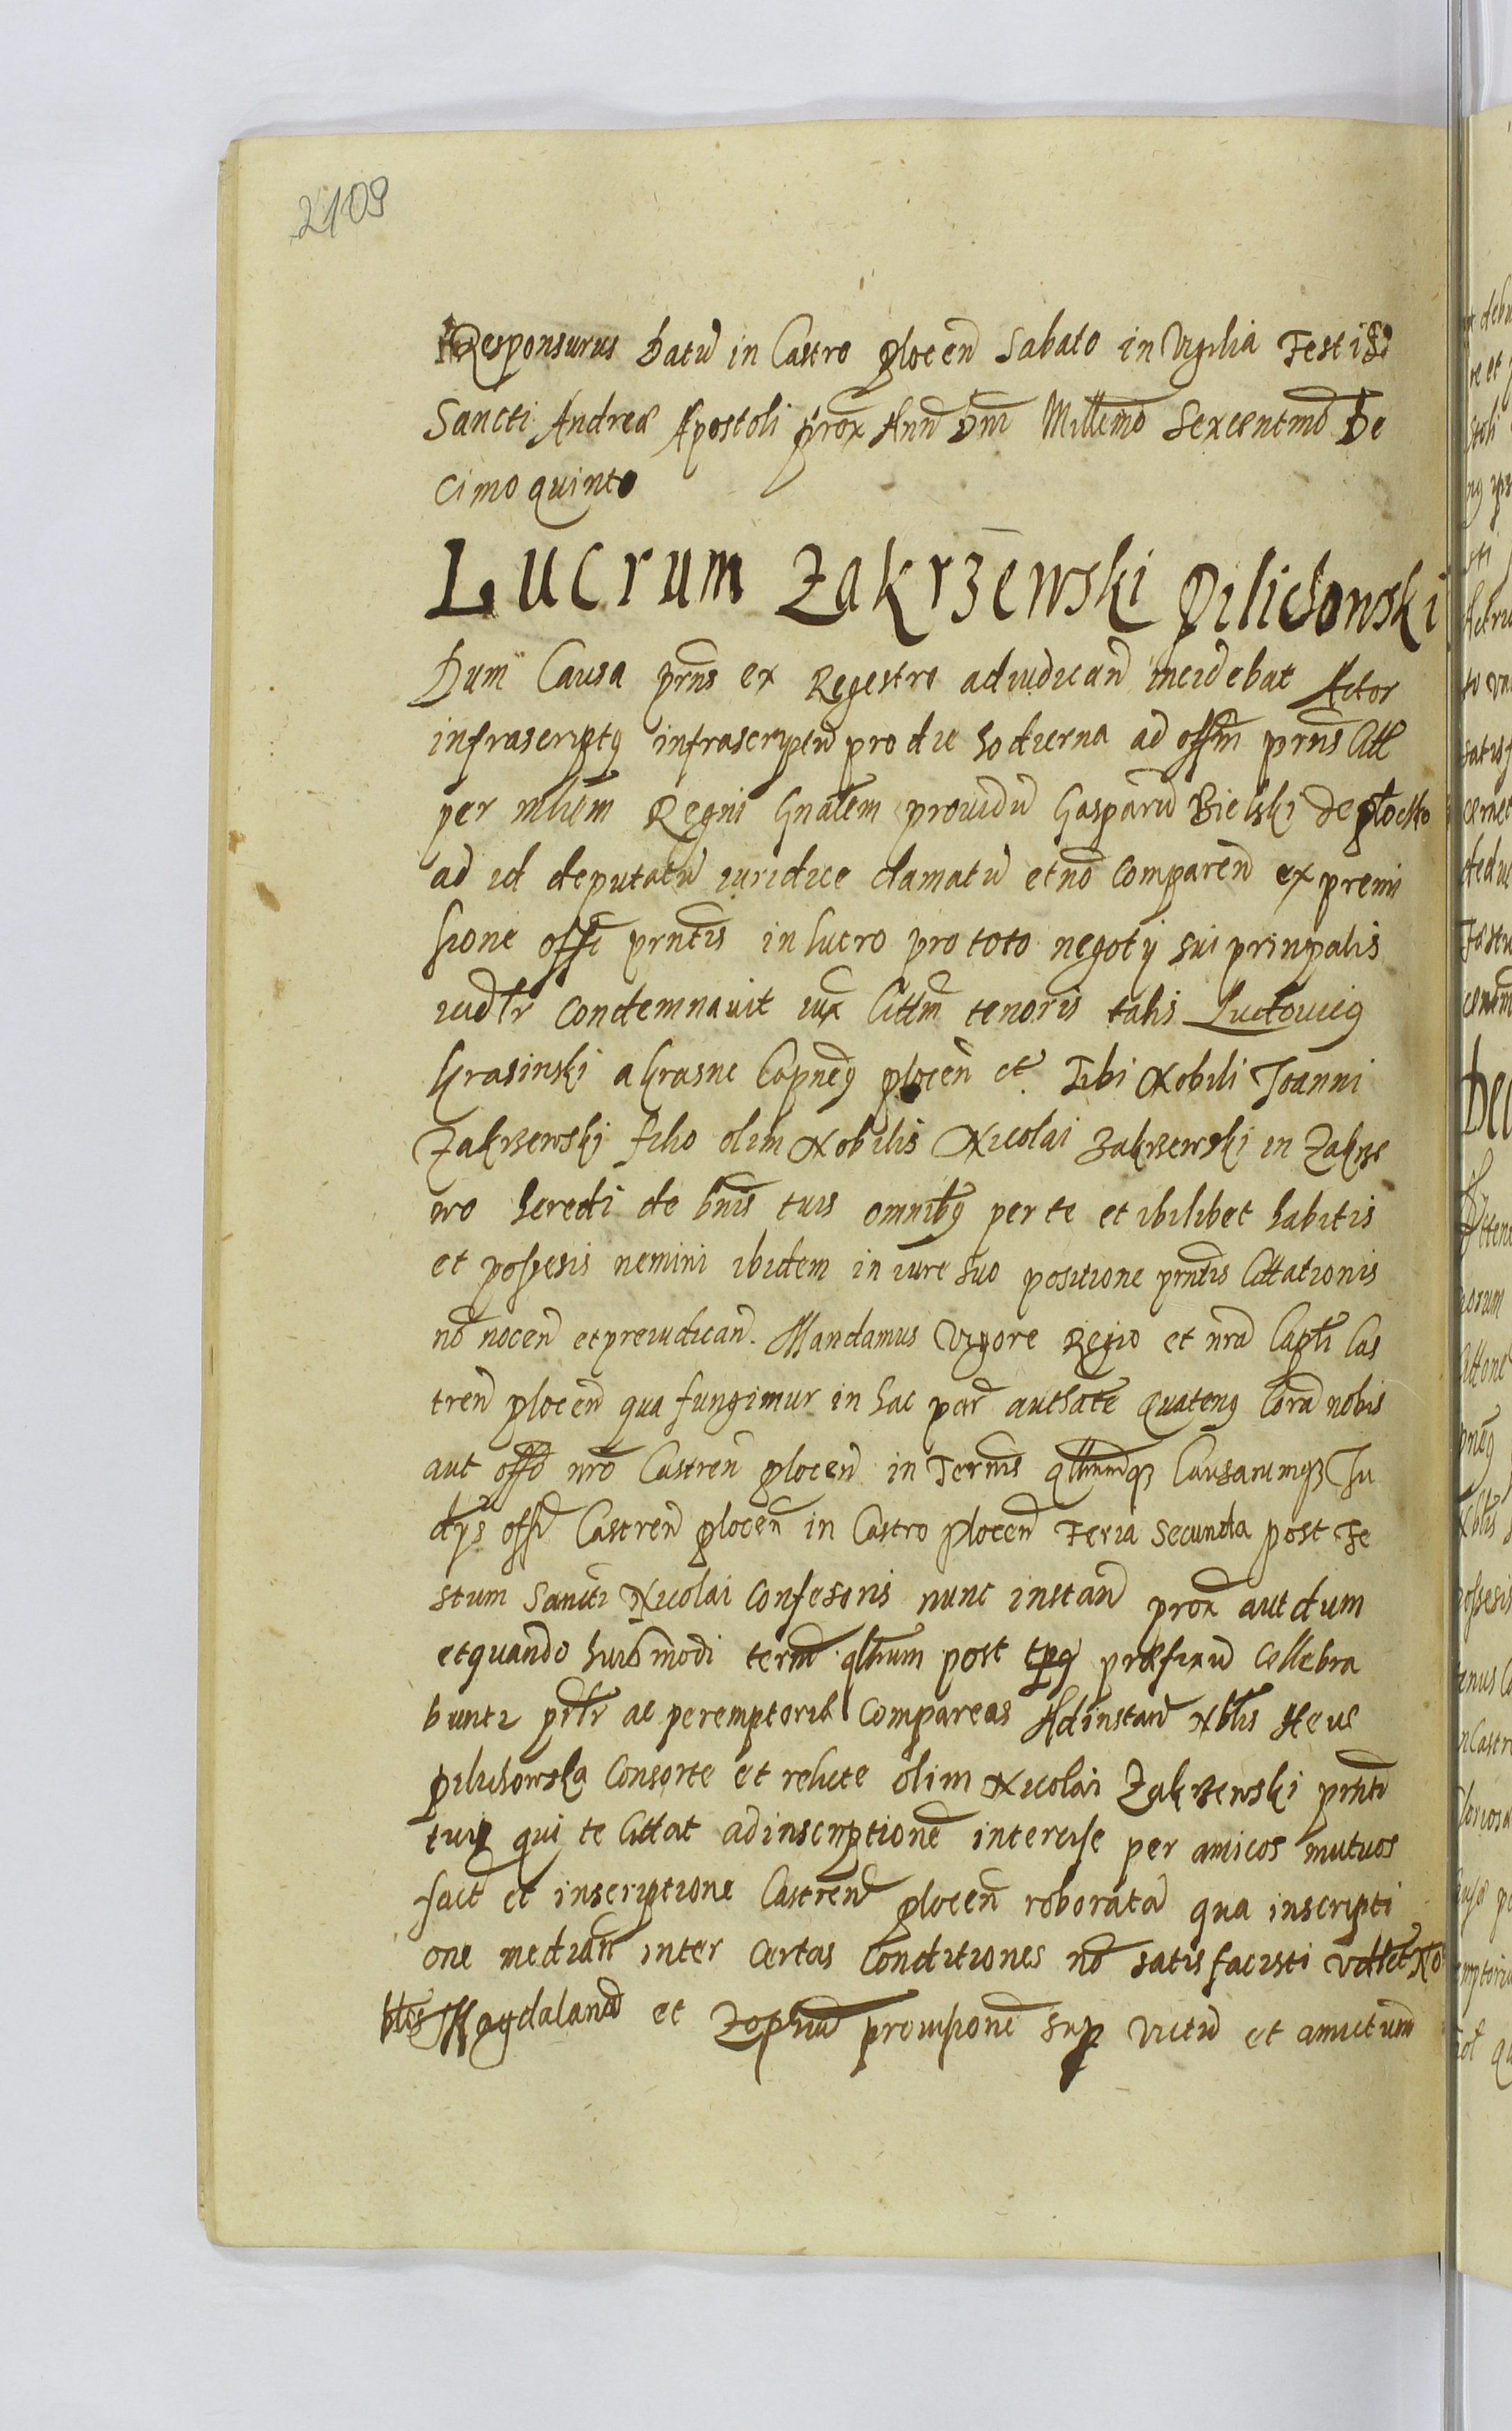 2109
Responsurus Datũ in Castro plocen̄ Sabato in Vigilia Festi
Sancti Andreæ Apostoli prox Ann̄ Dnī Millemō Sexcentmō De
cimo quinto
Lucrum Zakrzewski Pilichowski
Dum Causa prn̄s ex Regestro adiudican̄ incidebat Actor
infrascriptꝯ infrascriptũ pro die hodierna ad offm̄ prn̄s Citt
per mltm̄ Regni Gnalem prouidũ Gasparũ Bielski de plocko
ad id deputatũ iuridice clamatũ et nō comparen̄ ex premi
ssione offī prn̄tis in lucro pro toto negotij sui prinpalis
iudlr condemnauit iux Cittm̄ tenoris talis Ludouicꝯ
Krasinski a Krasne Capneꝯ plocen̄ et Tibi Nobili Joanni
Zakrzewski filio olim Nobilis Nicolai Zakrzewski in Zakrze
wo heredi de bn̄is tuis omnibꝯ per te et ibilibet habitis
et possesis nemini ibidem in iure suo positione prn̄tis Cittationis
nō nocen̄ et preiudican̄. Mandamus Vigore Regio et nrā Captī Cas
tren̄ plocen̄ qua fungimur in hac par authate Quatenꝯ Corā nobis
aut offō nrō Castren̄ plocen̄ in Termīs qllnumqꝫ Causarumqꝫ Ju
dijs offī Castren̄ plocen̄ in Castro plocen̄ Feria Secunda post Fe
stum Sancti Nicolai Confesoris nunc instan̄ prox aut dum
et quando huismodi term̄ qllnum post tpꝯ præfixũ cellebra
buntr prlr ac peremptorie Compareas Ad instan̄ Nblis Heue
Pilichowska Consorte et relicte olim Nicolai Zakrzewski prn̄tũ
tui qui te Cittat ad inscriptionē intercise per amicos mutuos
fact et inscriptione Castren̄ plocen̄ roborata qua inscripti
one median̄ inter certas Conditiones nō satis facisti vdlct No
bles Magdalanā et Zophiā prouisionē sup victũ et amictum